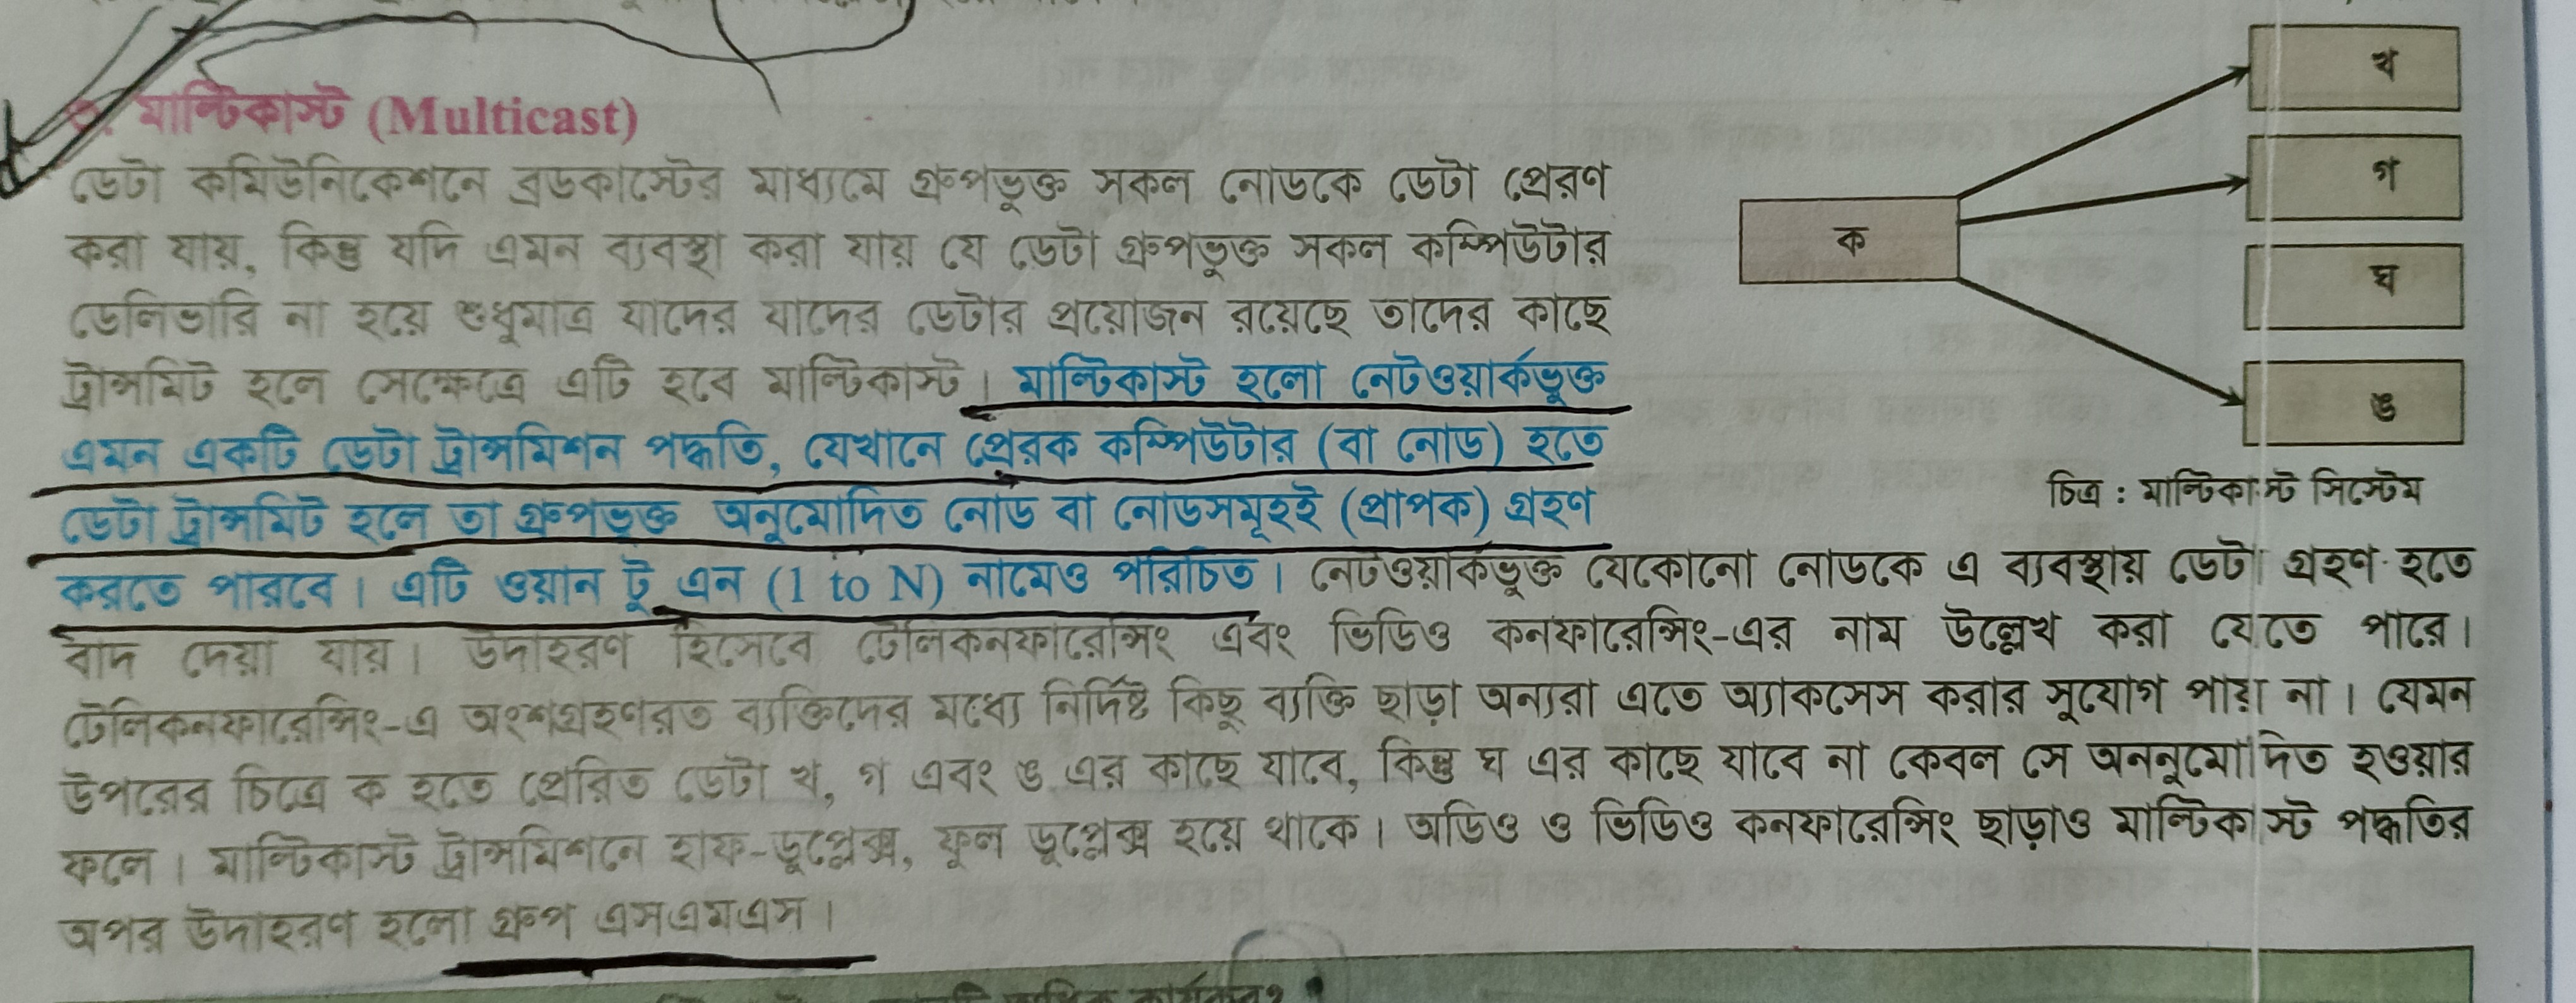 ৩. মাল্টিকাস্ট (Multicast)
ডেটা কমিউনিকেশনে ব্রডকাস্টের মাধ্যমে গ্রুপভুক্ত সকল নোডকে ডেটা প্রেরণ
করা যায়, কিন্তু যদি এমন ব্যবস্থা করা যায় যে ডেটা গ্রুপভুক্ত সকল কম্পিউটার
ডেলিভারি না হয়ে শুধুমাত্র যাদের যাদের ডেটার প্রয়োজন রয়েছে তাদের কাছে
ট্রান্সমিট হলে সেক্ষেত্রে এটি হবে মাল্টিকাস্ট। মাল্টিকাস্ট হলো নেটওয়ার্কভুক্ত
এমন একটি ডেটা ট্রান্সমিশন পদ্ধতি, যেখানে প্রেরক কম্পিউটার (বা নোড) হতে
ডেটা ট্রান্সমিট হলে তা গ্রুপভুক্ত অনুমোদিত নোড বা নোডসমূহই (প্রাপক) গ্রহণ
খ
গ
ক
ঘ
ঙ
চিত্র : মাল্টিকাস্ট সিস্টেম
করতে পারবে। এটি ওয়ান টু এন (1 to N) নামেও পরিচিত। নেটওয়ার্কভুক্ত যেকোনো নোডকে এ ব্যবস্থায় ডেটা গ্রহণ হতে
বাদ দেয়া যায়। উদাহরণ হিসেবে টেলিকনফারেন্সিং এবং ভিডিও কনফারেন্সিং-এর নাম উল্লেখ করা যেতে পারে।
টেলিকনফারেন্সিং-এ অংশগ্রহণরত ব্যক্তিদের মধ্যে নির্দিষ্ট কিছু ব্যক্তি ছাড়া অন্যরা এতে অ্যাকসেস করার সুযোগ পায় না। যেমন
উপরের চিত্রে ক হতে প্রেরিত ডেটা খ, গ এবং ঙ এর কাছে যাবে, কিন্তু ঘ এর কাছে যাবে না কেবল সে অননুমোদিত হওয়ার
ফলে। মাল্টিকাস্ট ট্রান্সমিশনে হাফ-ডুপ্লেক্স, ফুল ডুপ্লেক্স হয়ে থাকে। অডিও ও ভিডিও কনফারেন্সিং ছাড়াও মাল্টিকাস্ট পদ্ধতির
অপর উদাহরণ হলো গ্রুপ এসএমএস।